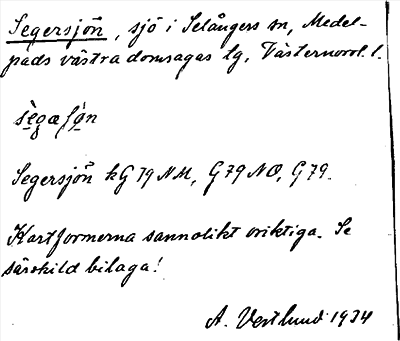 Segersjön, sjö i Selångers sn, Medel-
pads västra domsagas tg, Västernorrl. l.
sègaʃǿn
Segersjön kG 79 NM, G 79 NO, G 79.
Kartformerna sannolikt oriktiga. Se
särskild bilaga!
A. Vestlund 1934